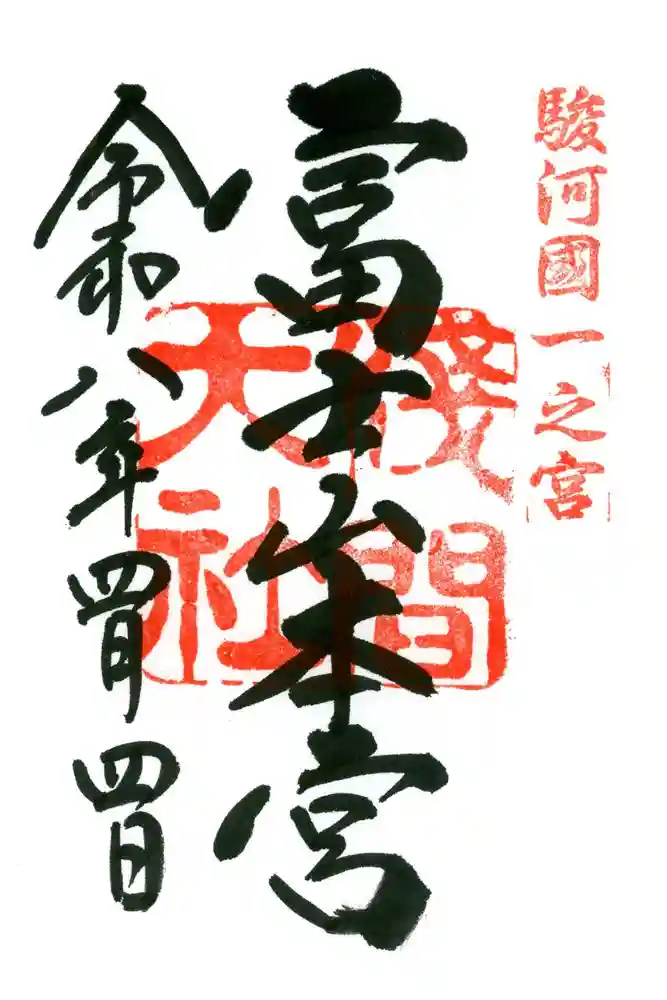 駿河國一之宮
富士山本宮
淺間
天社
令和八年四月四日